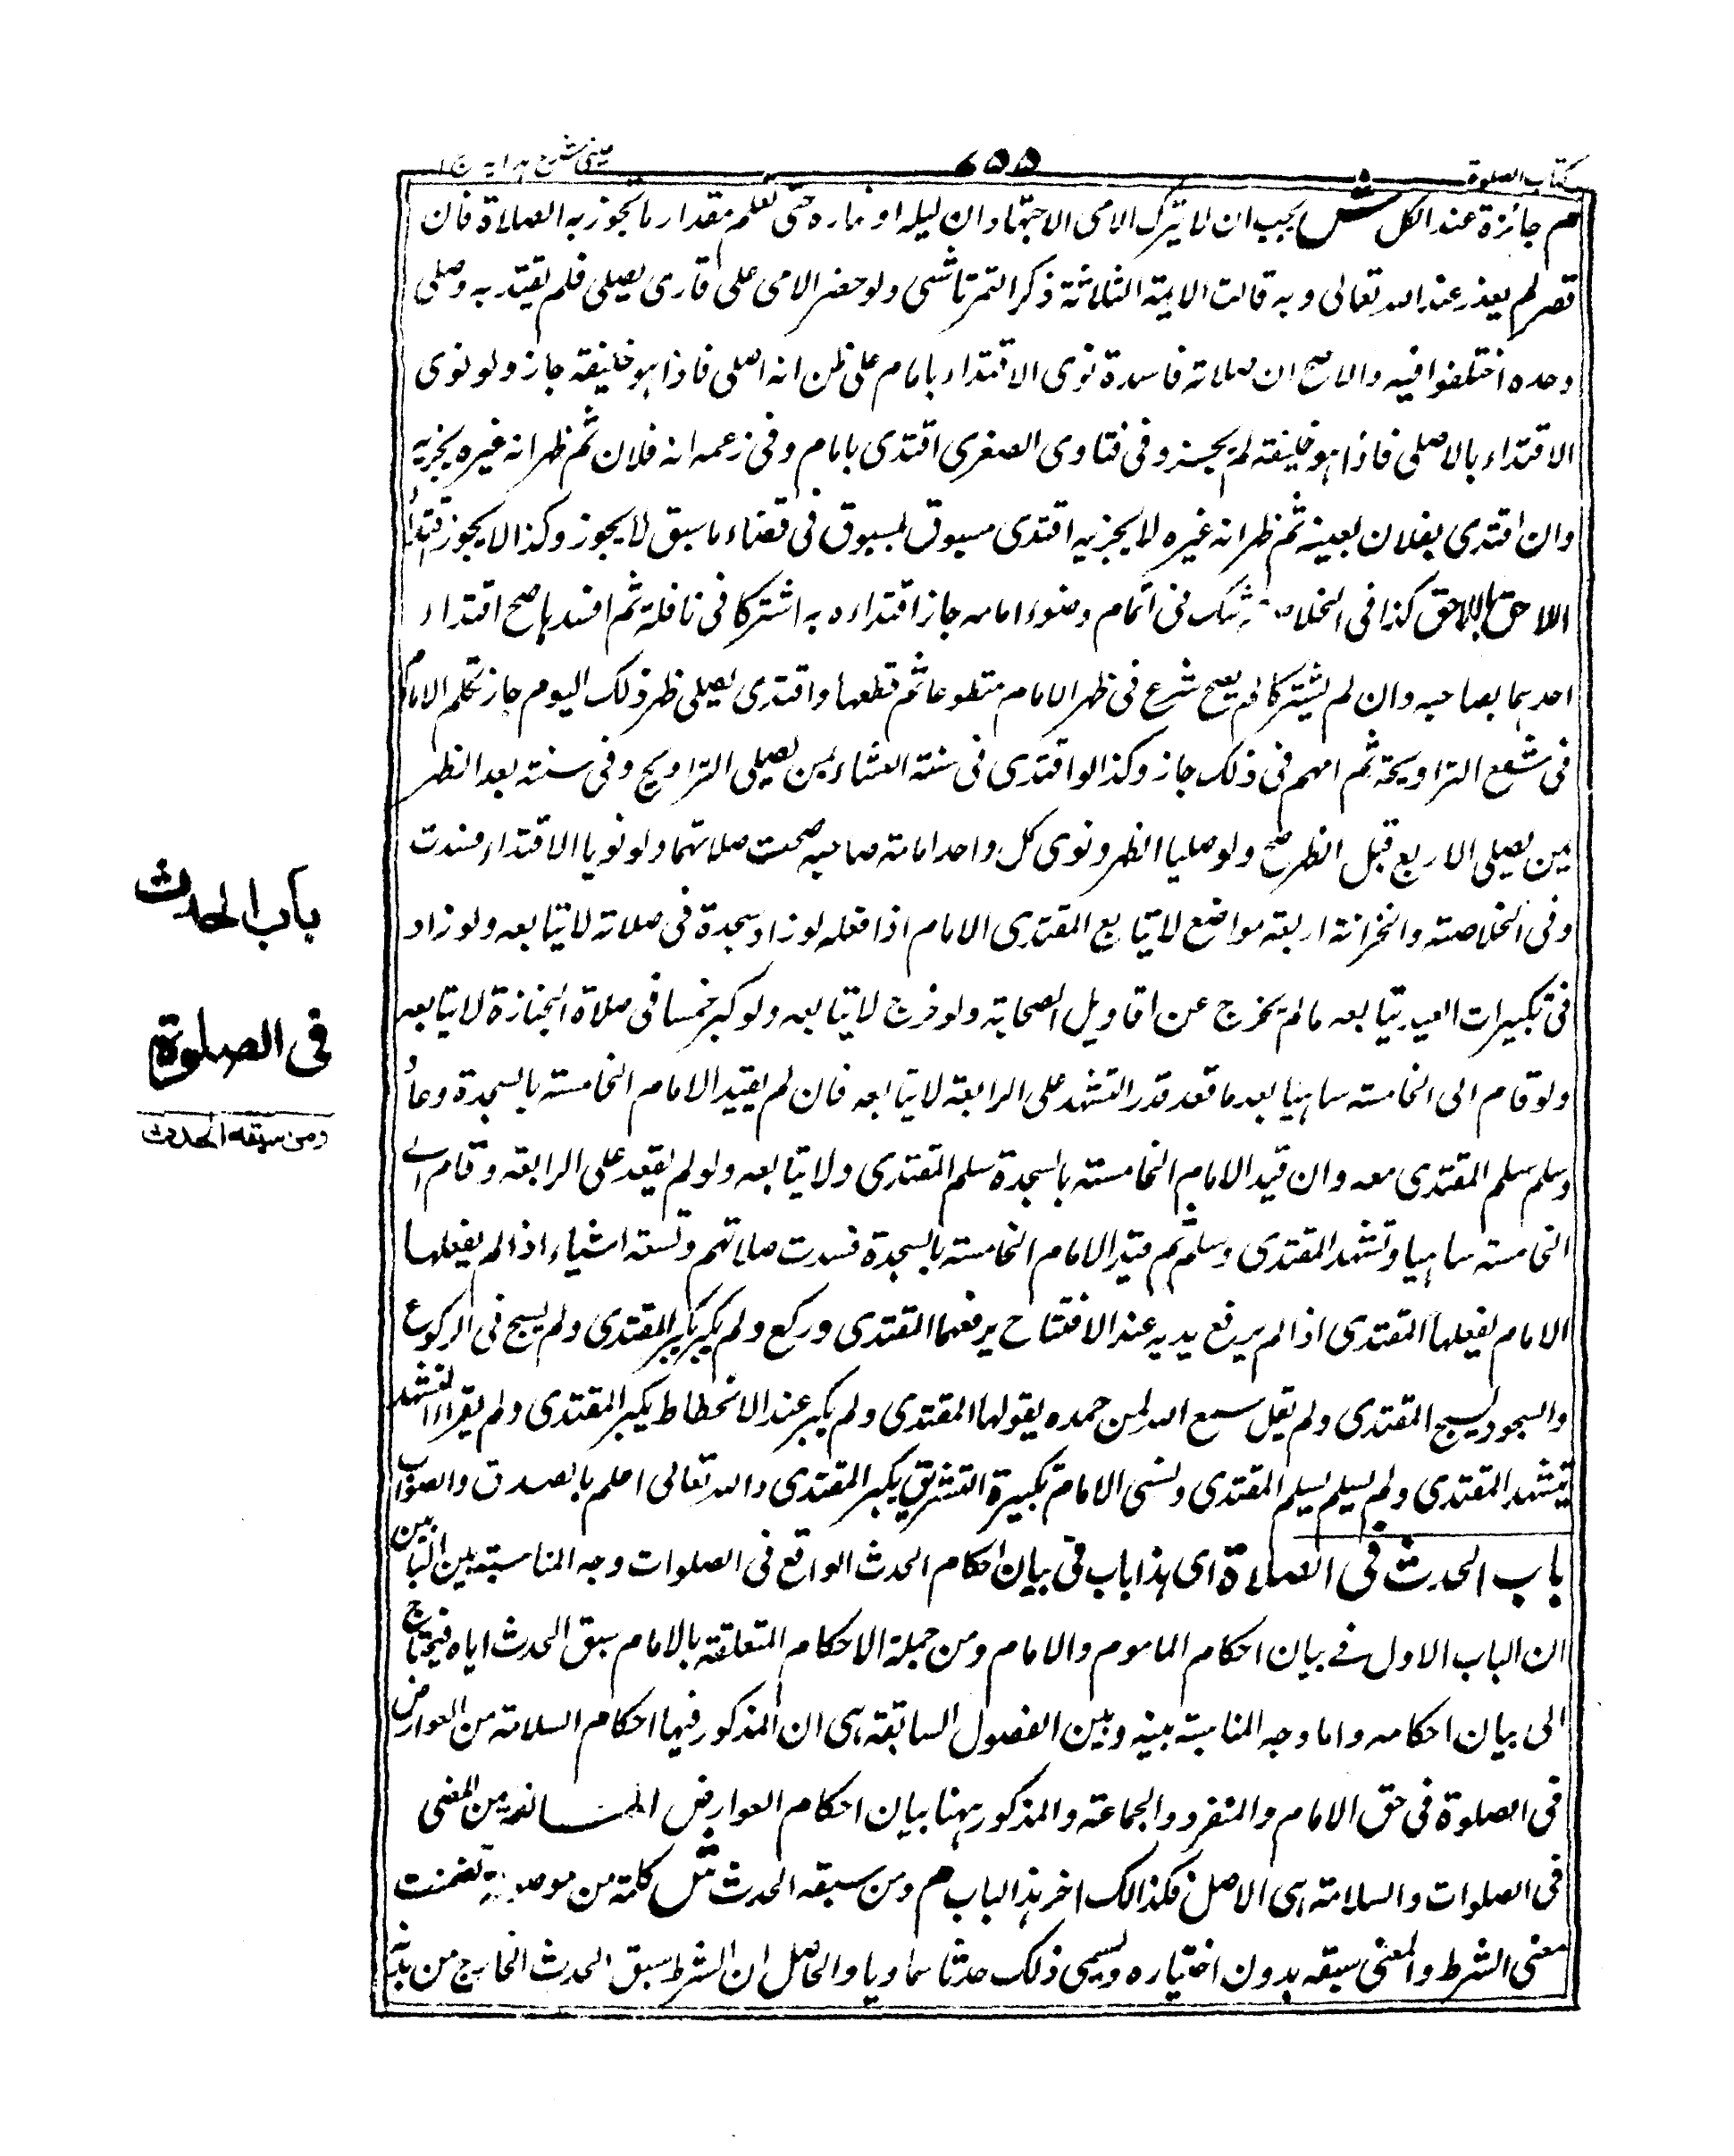 كتاب الصلوة
٧٥٥
عينى شرح هدايه ج ١
م جائزة عند الكل ش يجب ان لا يترك الامى الاجتهاد ان ليله او نهاره حتى تعلم مقدار ما تجوز به الصلاة فان
قصر لم يعذر عند الله تعالى وبه قالت الايمة الثلاثة ذكر التمرتاشى ولو حضر الامى على قارى يصلى فلم يقتد به وصلى
وحده اختلفوا فيه والاصح ان صلاته فاسدة نوى الاقتداء بامام على ظن انه اصلى فاذا هو خليفة جاز ولو نوى
الاقتداء بالاصلى فاذا هو خليفة لم يجز وفى فتاوى الصغرى اقتدى بامام وفى زعمه انه فلان ثم ظهر انه غيره يجزيه
وان اقتدى بفلان بعينه ثم ظهر انه غيره لا يجزيه اقتدى مسبوق بمسبوق فى قضاء ما سبق لا يجوز وكذا لا يجوز اقتداء
اللاحق باللاحق كذا فى الخلاصة شك فى اتمام وضوء امامه جاز اقتداءه به اشتركا فى نافلة ثم افسداها صح اقتداء
احدهما بصاحبه وان لم يشتركا لم يصح شرع فى ظهر الامام متطوعا ثم قطعها واقتدى يصلى ظهر ذلك اليوم جاز تكلم الامام
فى شفع التراويحة ثم امهم فى ذلك جاز وكذا لو اقتدى فى سنة العشاء بمن يصلى التراويح وفى سنته بعد الظهر
بمن يصلى الاربع قبل الظهر صح ولو صليا الظهر ونوى كل واحد امامة صاحبه صحت صلاتهما ولو نويا الاقتداء فسدت
وفى الخلاصة والخزانة اربعة مواضع لا يتابع المقتدى الامام اذا فعله لو زاد سجدة فى صلاته لا يتابعه ولو زاد
فى تكبيرات العيد يتابعه ما لم يخرج عن اقاويل الصحابة ولو خرج لا يتابعه ولو كبر خمسا فى صلاة الجنازة لا يتابعه
ولو قام الى الخامسة ساهيا بعد ما قعد قدر التشهد على الرابعة لا يتابعه فان لم يقيد الامام الخامسة بالسجدة وعاد
وسلم سلم المقتدى معه وان قيد الامام الخامسة بالسجدة سلم المقتدى ولا يتابعه ولو لم يقعد على الرابعة وقام الى
الخامسة ساهيا وتشهد المقتدى وسلم ثم قيد الامام الخامسة بالسجدة فسدت صلاتهم وتسعة اشياء اذا لم يفعلها
الامام يفعلها المقتدى اذا لم يرفع يديه عند الافتتاح يرفعهما المقتدى وركع ولم يكبر يكبر المقتدى ولم يسبح فى الركوع
والسجود يسبح المقتدى ولم يقل سمع الله لمن حمده يقولها المقتدى ولم يكبر عند الانحطاط يكبر المقتدى ولم يقرا التشهد
يتشهد المقتدى ولم يسلم يسلم المقتدى ونسى الامام تكبيرة التشريق يكبر المقتدى والله تعالى اعلم بالصدق والصواب
باب الحدث فى الصلاة اى هذا باب فى بيان احكام الحدث الواقع فى الصلوات وجه المناسبة بين البابين
ان الباب الاول فى بيان احكام الماموم والامام ومن جملة الاحكام المتعلقة بالامام سبق الحدث اياه فيحتاج
الى بيان احكامه واما وجه المناسبة بينه وبين الفصول السابقة هى ان المذكور فيها احكام السلامة من العوارض
فى الصلوة فى حق الامام والمنفرد والجماعة والمذكور ههنا بيان احكام العوارض المانعة من المضى
فى الصلوات والسلامة هى الاصل فكذالك اخر هذا الباب م ومن سبقه الحدث ش كلمة من موصولة تضمنت
معنى الشرط والمعنى سبقه بدون اختياره ويسمى ذلك حدثا سماويا والحاصل ان الشرط سبق الحدث الخارج من بدنه
باب الحدث
فى الصلوة
ومن سبقه الحدث